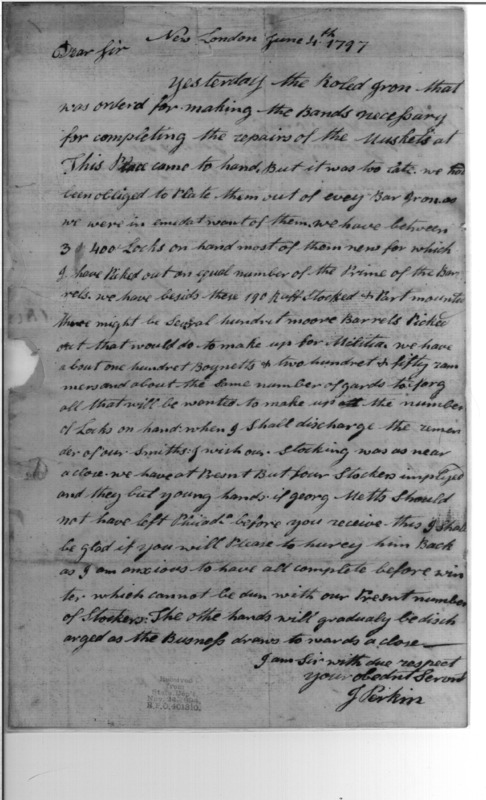 New London June 4th 1797
Dear Sir
Yesterday the Roled Iron that
was orderd for making the Bands necessary
for completing the repairs of the Muskets at
This Place came to hand, But it was too late. we had
been obliged to Plate them out of evoy Bar Iron. as
we were in emidat want of them. we have between
3 & 400 Locks on hand most of them new for which
I have Picked out an equal number of the Prime of the Bar
rels. we have besids these 190 Ruff Stocked & Part mounted
there might be Several hundret moore Barrels Picked
out that would do to make up for Militia. we have
about one hundret Boynetts & two hundret & fifty ram
mers and about the Same number of gards to forg
all that will be wanted to make up the number
of Locks on hand. when I Shall discharge the remen
der of our Smiths. I wich our Stocking was as near
a close. we have at Presnt But four Stockers imployed
and they but young hands. if georg Metts Should
not have left Philada. before you receive this I Shall
be glad if you will Please to hurey him Back
as I am anxious to have all complete before win
ter which cannot be dun with our Presnt number
of Stockers. The othe hands will gradualy be disch
arged as the Busness draws to wards a close—
I am Sir with due respect
your obednt Servnt
J Perkin
Received
From
State Dep't
R.P.O. 401310.